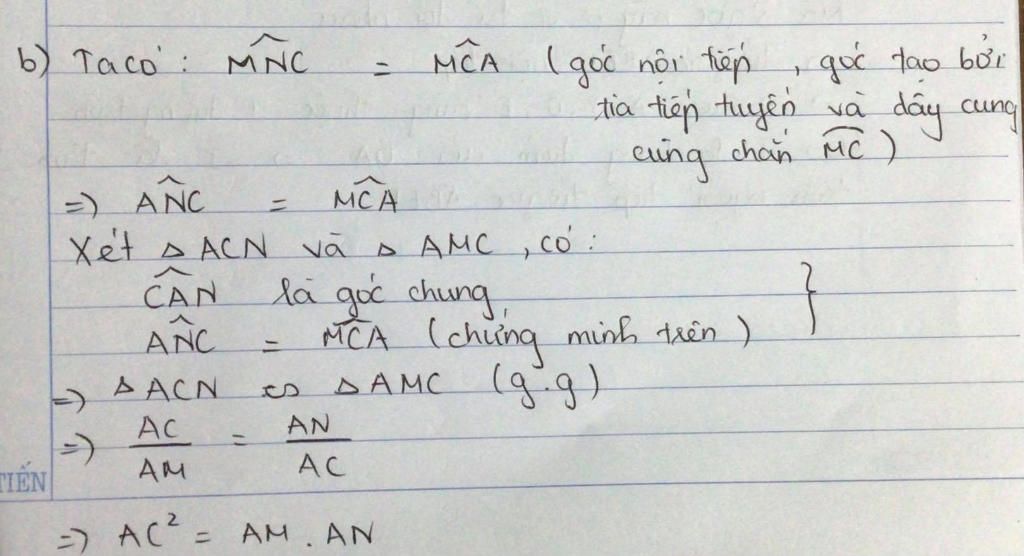 b) Ta có : M̂NC = M̂CA ( góc nội tiếp , góc tạo bởi
tia tiếp tuyến và dây cung
cùng chắn MC )
=> ÂNC = M̂CA
Xét Δ ACN và Δ AMC , có :
ĈAN là góc chung
ÂNC = M̂CA ( chứng minh trên ) }
=> Δ ACN ∽ Δ AMC (g.g)
=> AC/AM = AN/AC
TIẾN
=> AC² = AM . AN